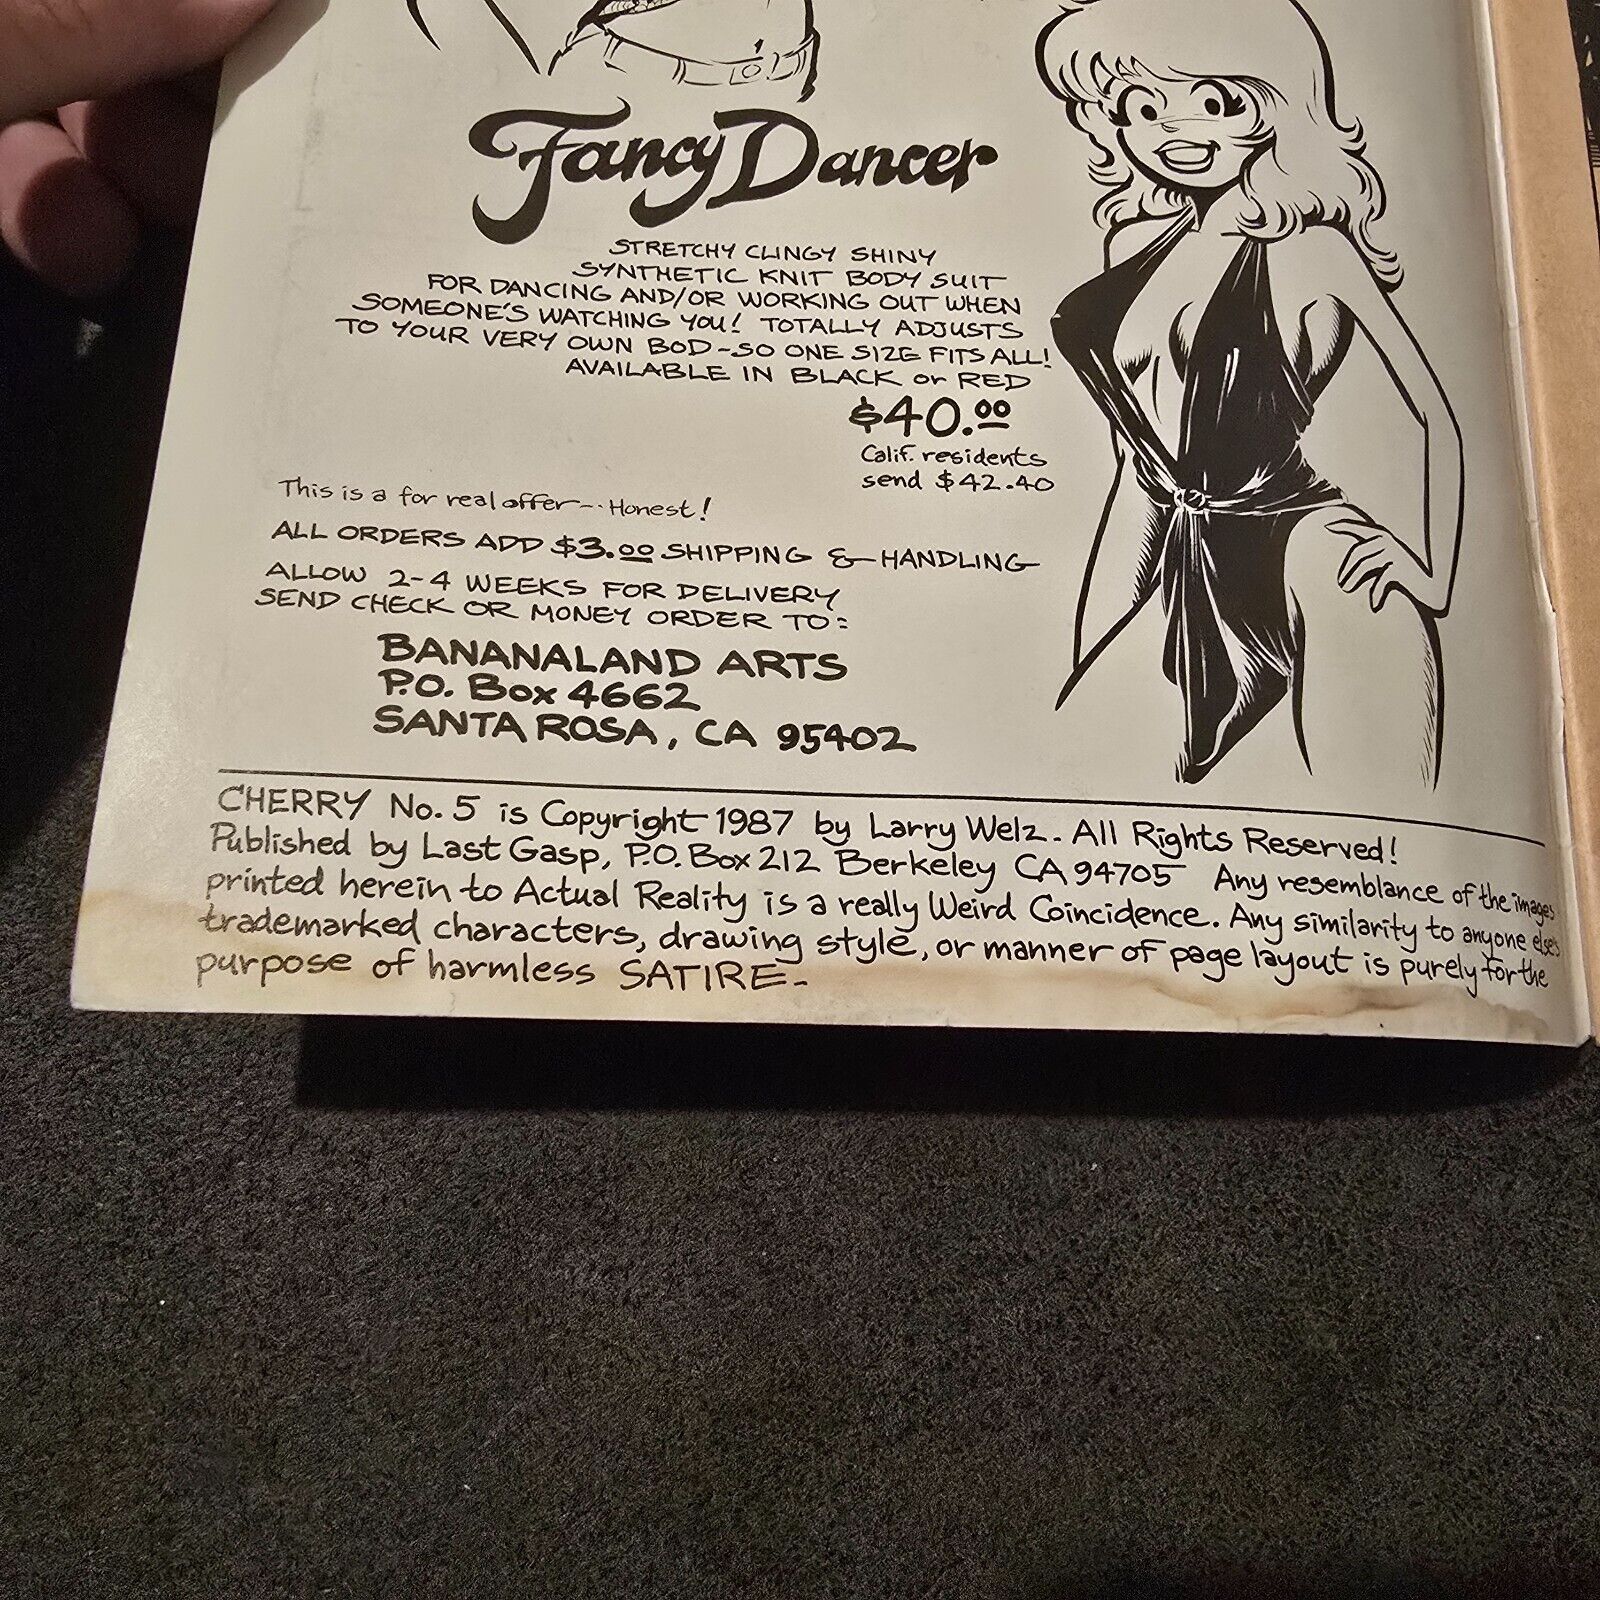 Fancy Dancer
STRETCHY CLINGY SHINY
SYNTHETIC KNIT BODY SUIT
FOR DANCING AND/OR WORKING OUT WHEN
SOMEONE'S WATCHING YOU! TOTALLY ADJUSTS
TO YOUR VERY OWN BOD-SO ONE SIZE FITS ALL!
AVAILABLE IN BLACK or RED
$40.00
Calif. residents
send $42.40
This is a for real offer--Honest!
ALL ORDERS ADD $3.00 SHIPPING & HANDLING
ALLOW 2-4 WEEKS FOR DELIVERY
SEND CHECK OR MONEY ORDER TO:
BANANALAND ARTS
P.O. Box 4662
SANTA ROSA, CA 95402
CHERRY No. 5 is Copyright 1987 by Larry Welz. All Rights Reserved!
Published by Last Gasp, P.O. Box 212 Berkeley CA 94705 Any resemblance of the images
printed herein to Actual Reality is a really Weird Coincidence. Any similarity to anyone else's
trademarked characters, drawing style, or manner of page layout is purely for the
purpose of harmless SATIRE-